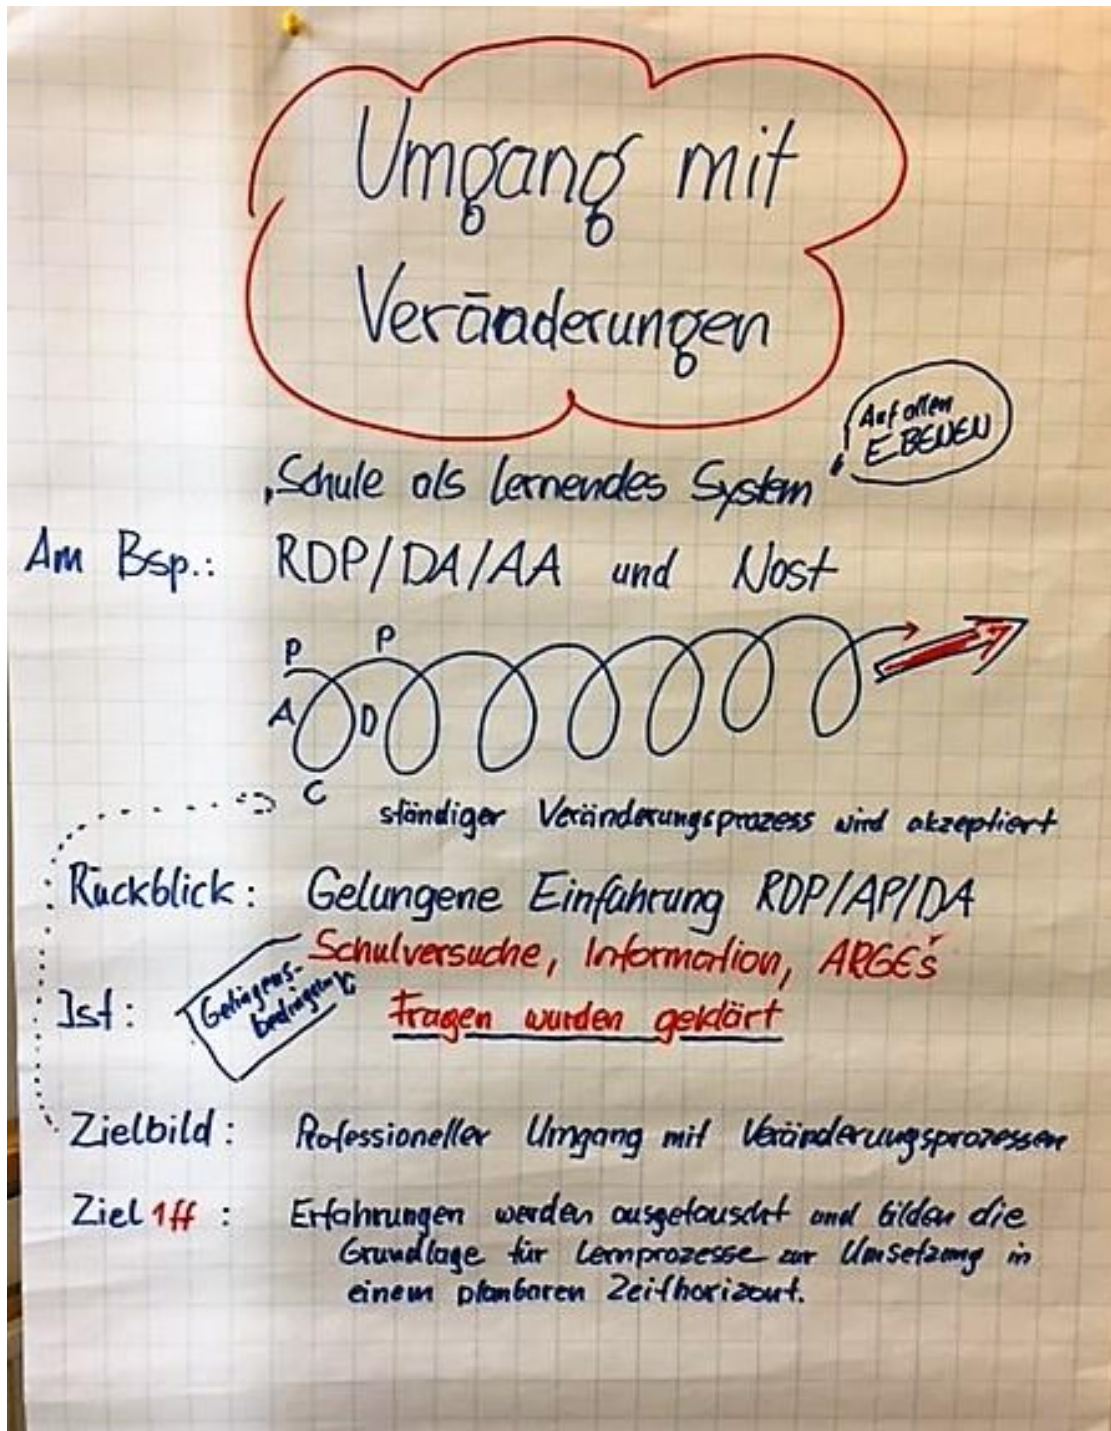 Umgang mit
Veränderungen
Auf allen
EBENEN
Schule als lernendes System
Am Bsp.: RDP/DA/AA und Nost
P P
A D
C
ständiger Veränderungsprozess wird akzeptiert
Rückblick: Gelungene Einführung RDP/AP/DA
Schulversuche, Information, ARGE's
Gelingens-
bedingung
Ist: Fragen wurden geklärt
Zielbild: Professioneller Umgang mit Veränderungsprozessen
Ziel 1ff : Erfahrungen werden ausgetauscht und bilden die
Grundlage für Lernprozesse zur Umsetzung in
einem planbaren Zeithorizont.